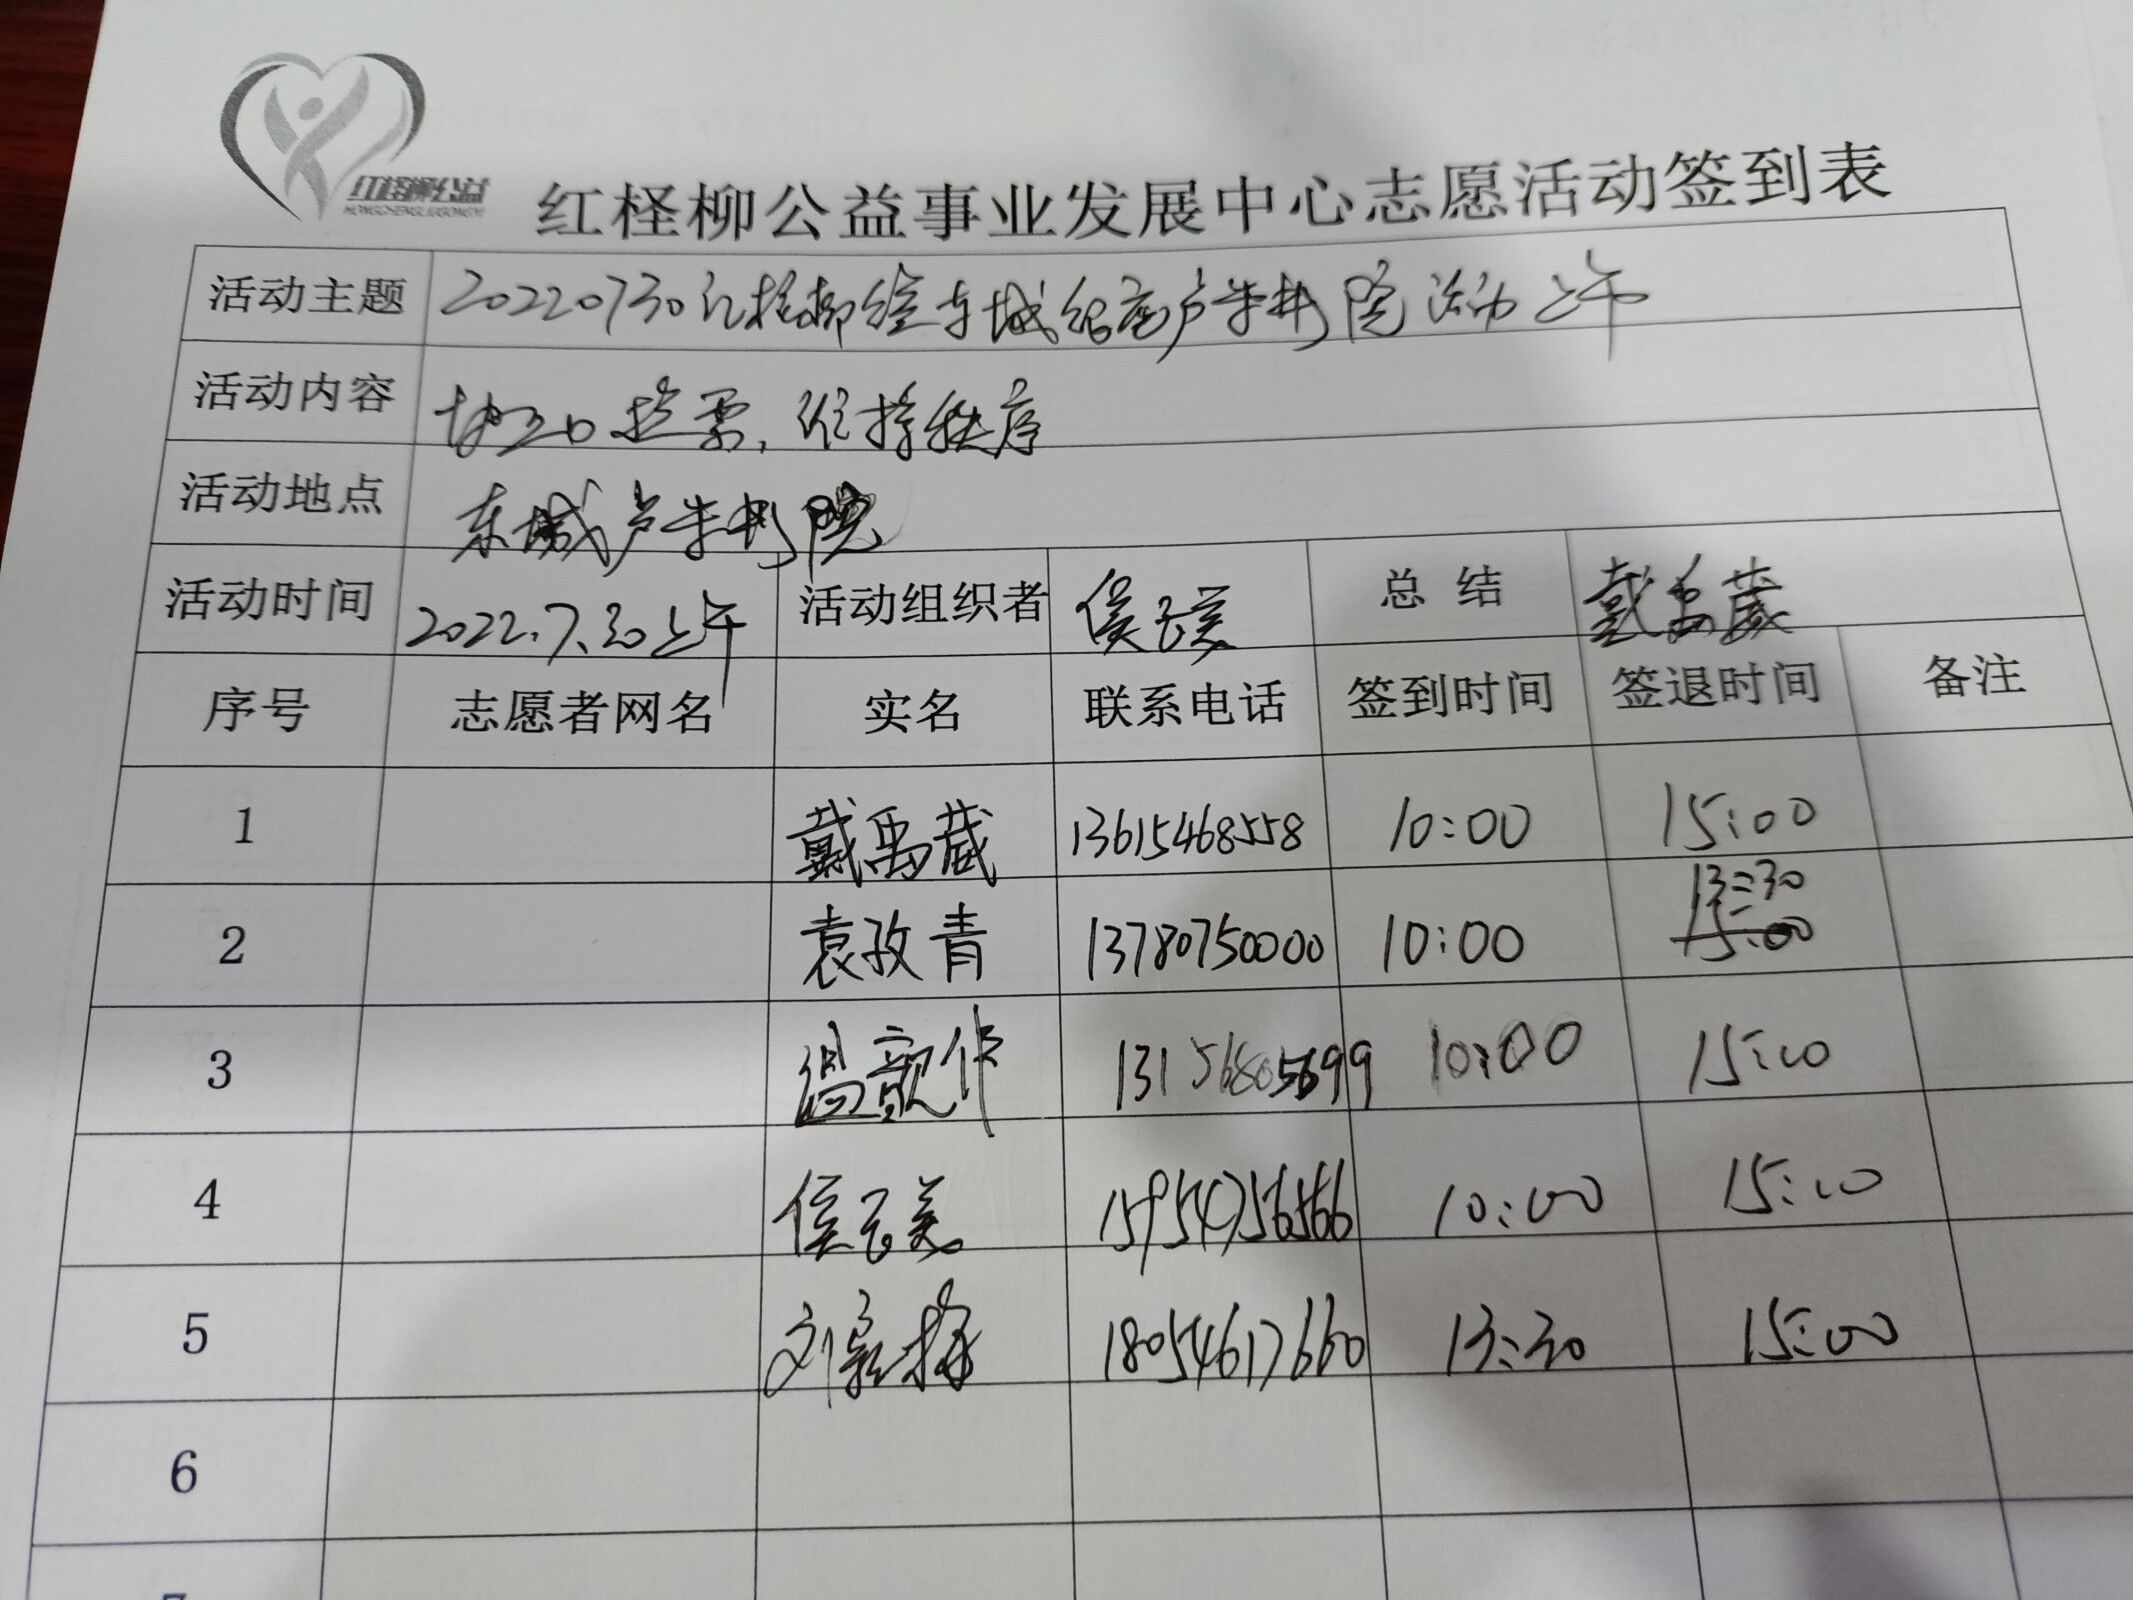 红柽柳公益
HONGCHENGLIUGONGYI
红柽柳公益事业发展中心志愿活动签到表
活动主题 20220730红柽柳 东城 卢米埃影院活动上午
活动内容 协助检票,维持秩序
活动地点 东城卢米影院
活动时间 2022.7.30上午 活动组织者 侯云美 总 结 戴禹葳
序号 志愿者网名 实名 联系电话 签到时间 签退时间 备注
1 戴禹葳 13615468558 10:00 15:00
13:30
2 袁孜青 13780750000 10:00 15:00
3 13156805699 10:00 15:00
4 侯云美 15954756566 10:00 15:00
5 18054617660 13:30 15:00
6